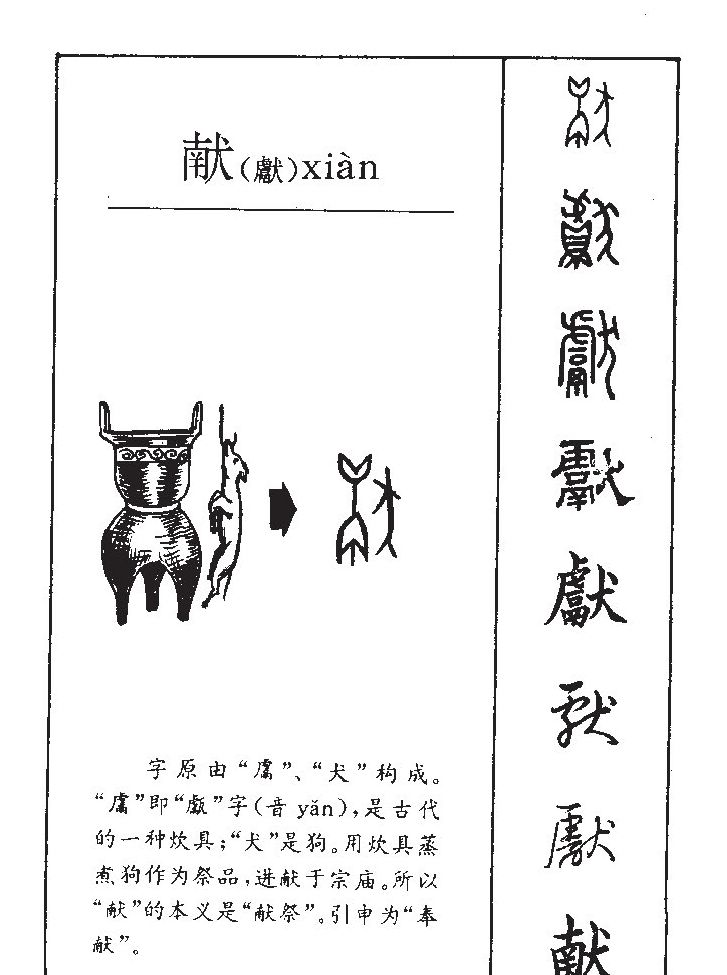 献(獻)xiàn
字原由“鬳”、“犬”构成。
“鬳”即“甗”字(音yǎn),是古代
的一种炊具;“犬”是狗。用炊具蒸
煮狗作为祭品,进献于宗庙。所以
“献”的本义是“献祭”。引申为“奉
献”。
獻
獻
献